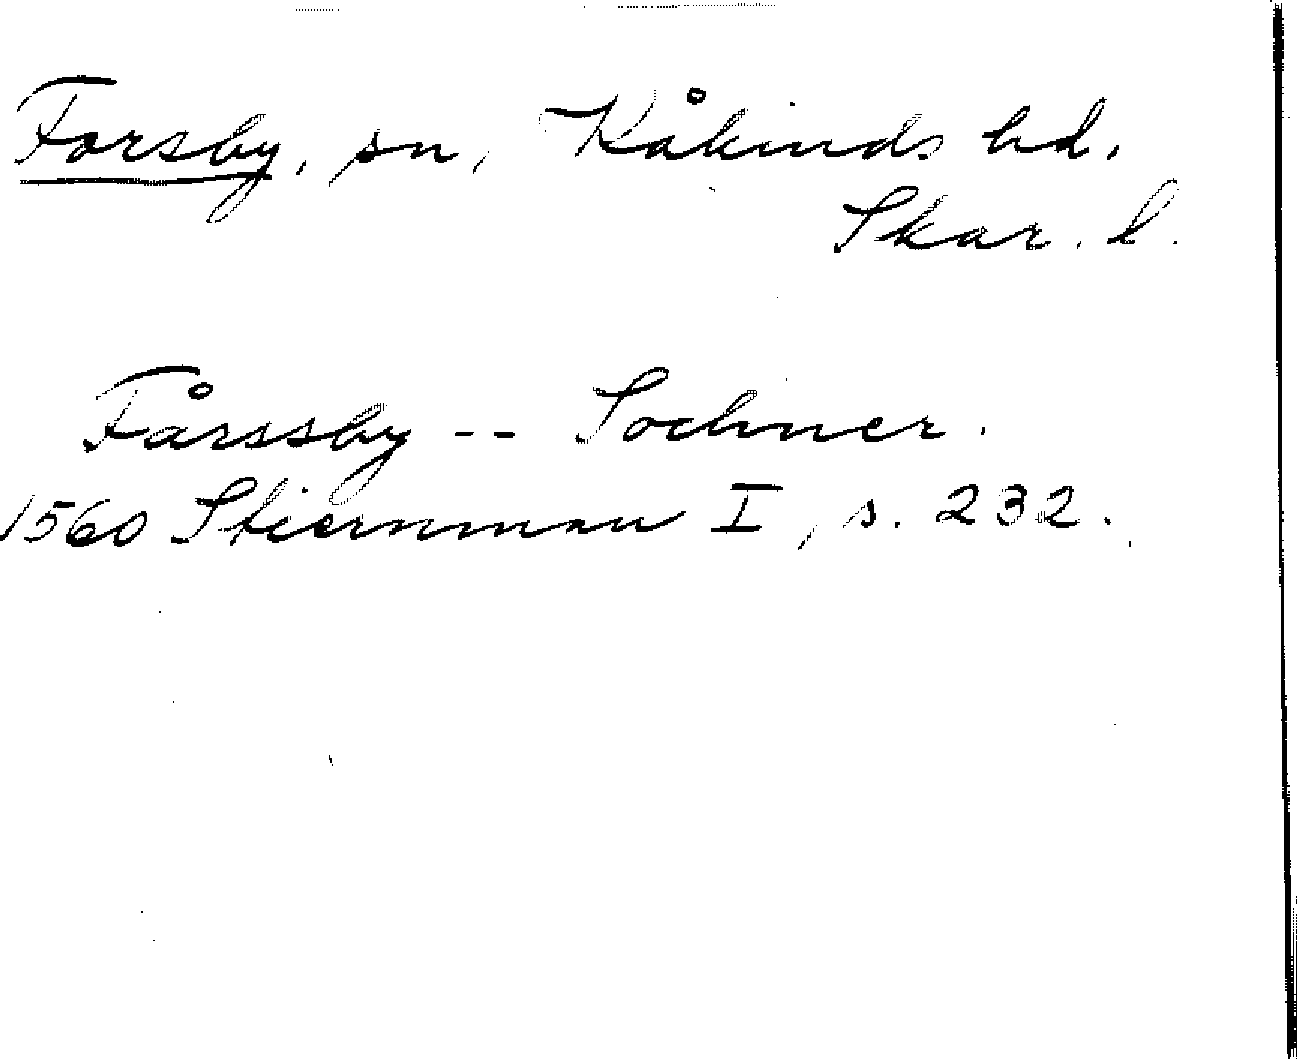 Forsby, sn, Kåkinds hd.
Skar. l.
Fårssby -- Sochner.
1560 Stiernman I, s. 232.